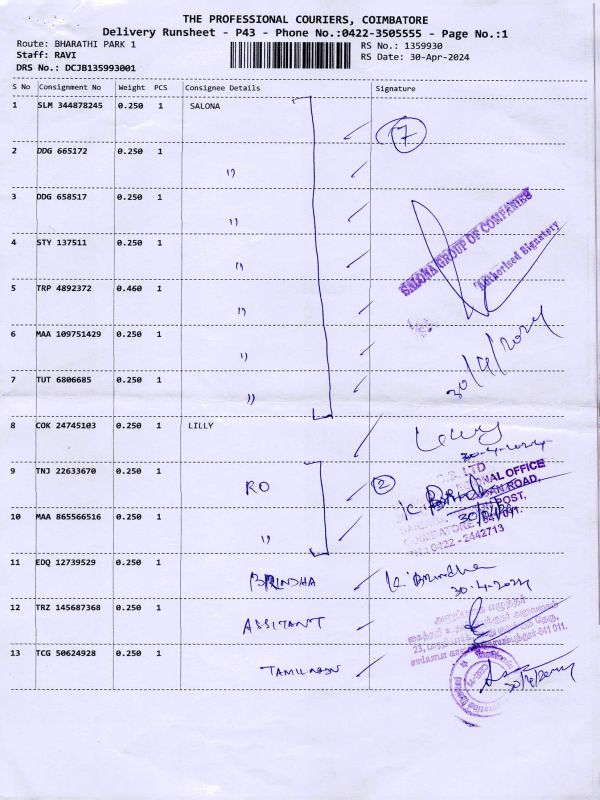 THE PROFESSIONAL COURIERS, COIMBATORE
Delivery Runsheet - P43 - Phone No.:0422-3505555 - Page No.:1
Route: BHARATHI PARK 1 RS No.: 1359930
Staff: RAVI RS Date: 30-Apr-2024
DRS No.: DCJB135993001
S No Consignment No Weight PCS Consignee Details Signature
1 SLM 344878245 0.250 1 SALONA
7
2 DDG 665172 0.250 1
"
3 DDG 658517 0.250 1
"
SALONA GROUP OF COMPANIES
Authorised Signatory
4 STY 137511 0.250 1
"
5 TRP 4892372 0.460 1
"
30/4/2024
6 MAA 109751429 0.250 1
"
7 TUT 6806685 0.250 1
"
8 COK 24745103 0.250 1 LILLY
Lilly
30-4-2024
9 TNJ 22633670 0.250 1
RO 2
LTD
OFFICE
ROAD,
POST,
K. Brindha
10 MAA 865566516 0.250 1
"
COIMBATORE - 641 011.
0422 - 2442713
11 EDQ 12739529 0.250 1
BRINDHA K. Brindha
30-4-2024
12 TRZ 145687368 0.250 1
ASSITANT
13 TCG 50624928 0.250 1
TAMILNADU